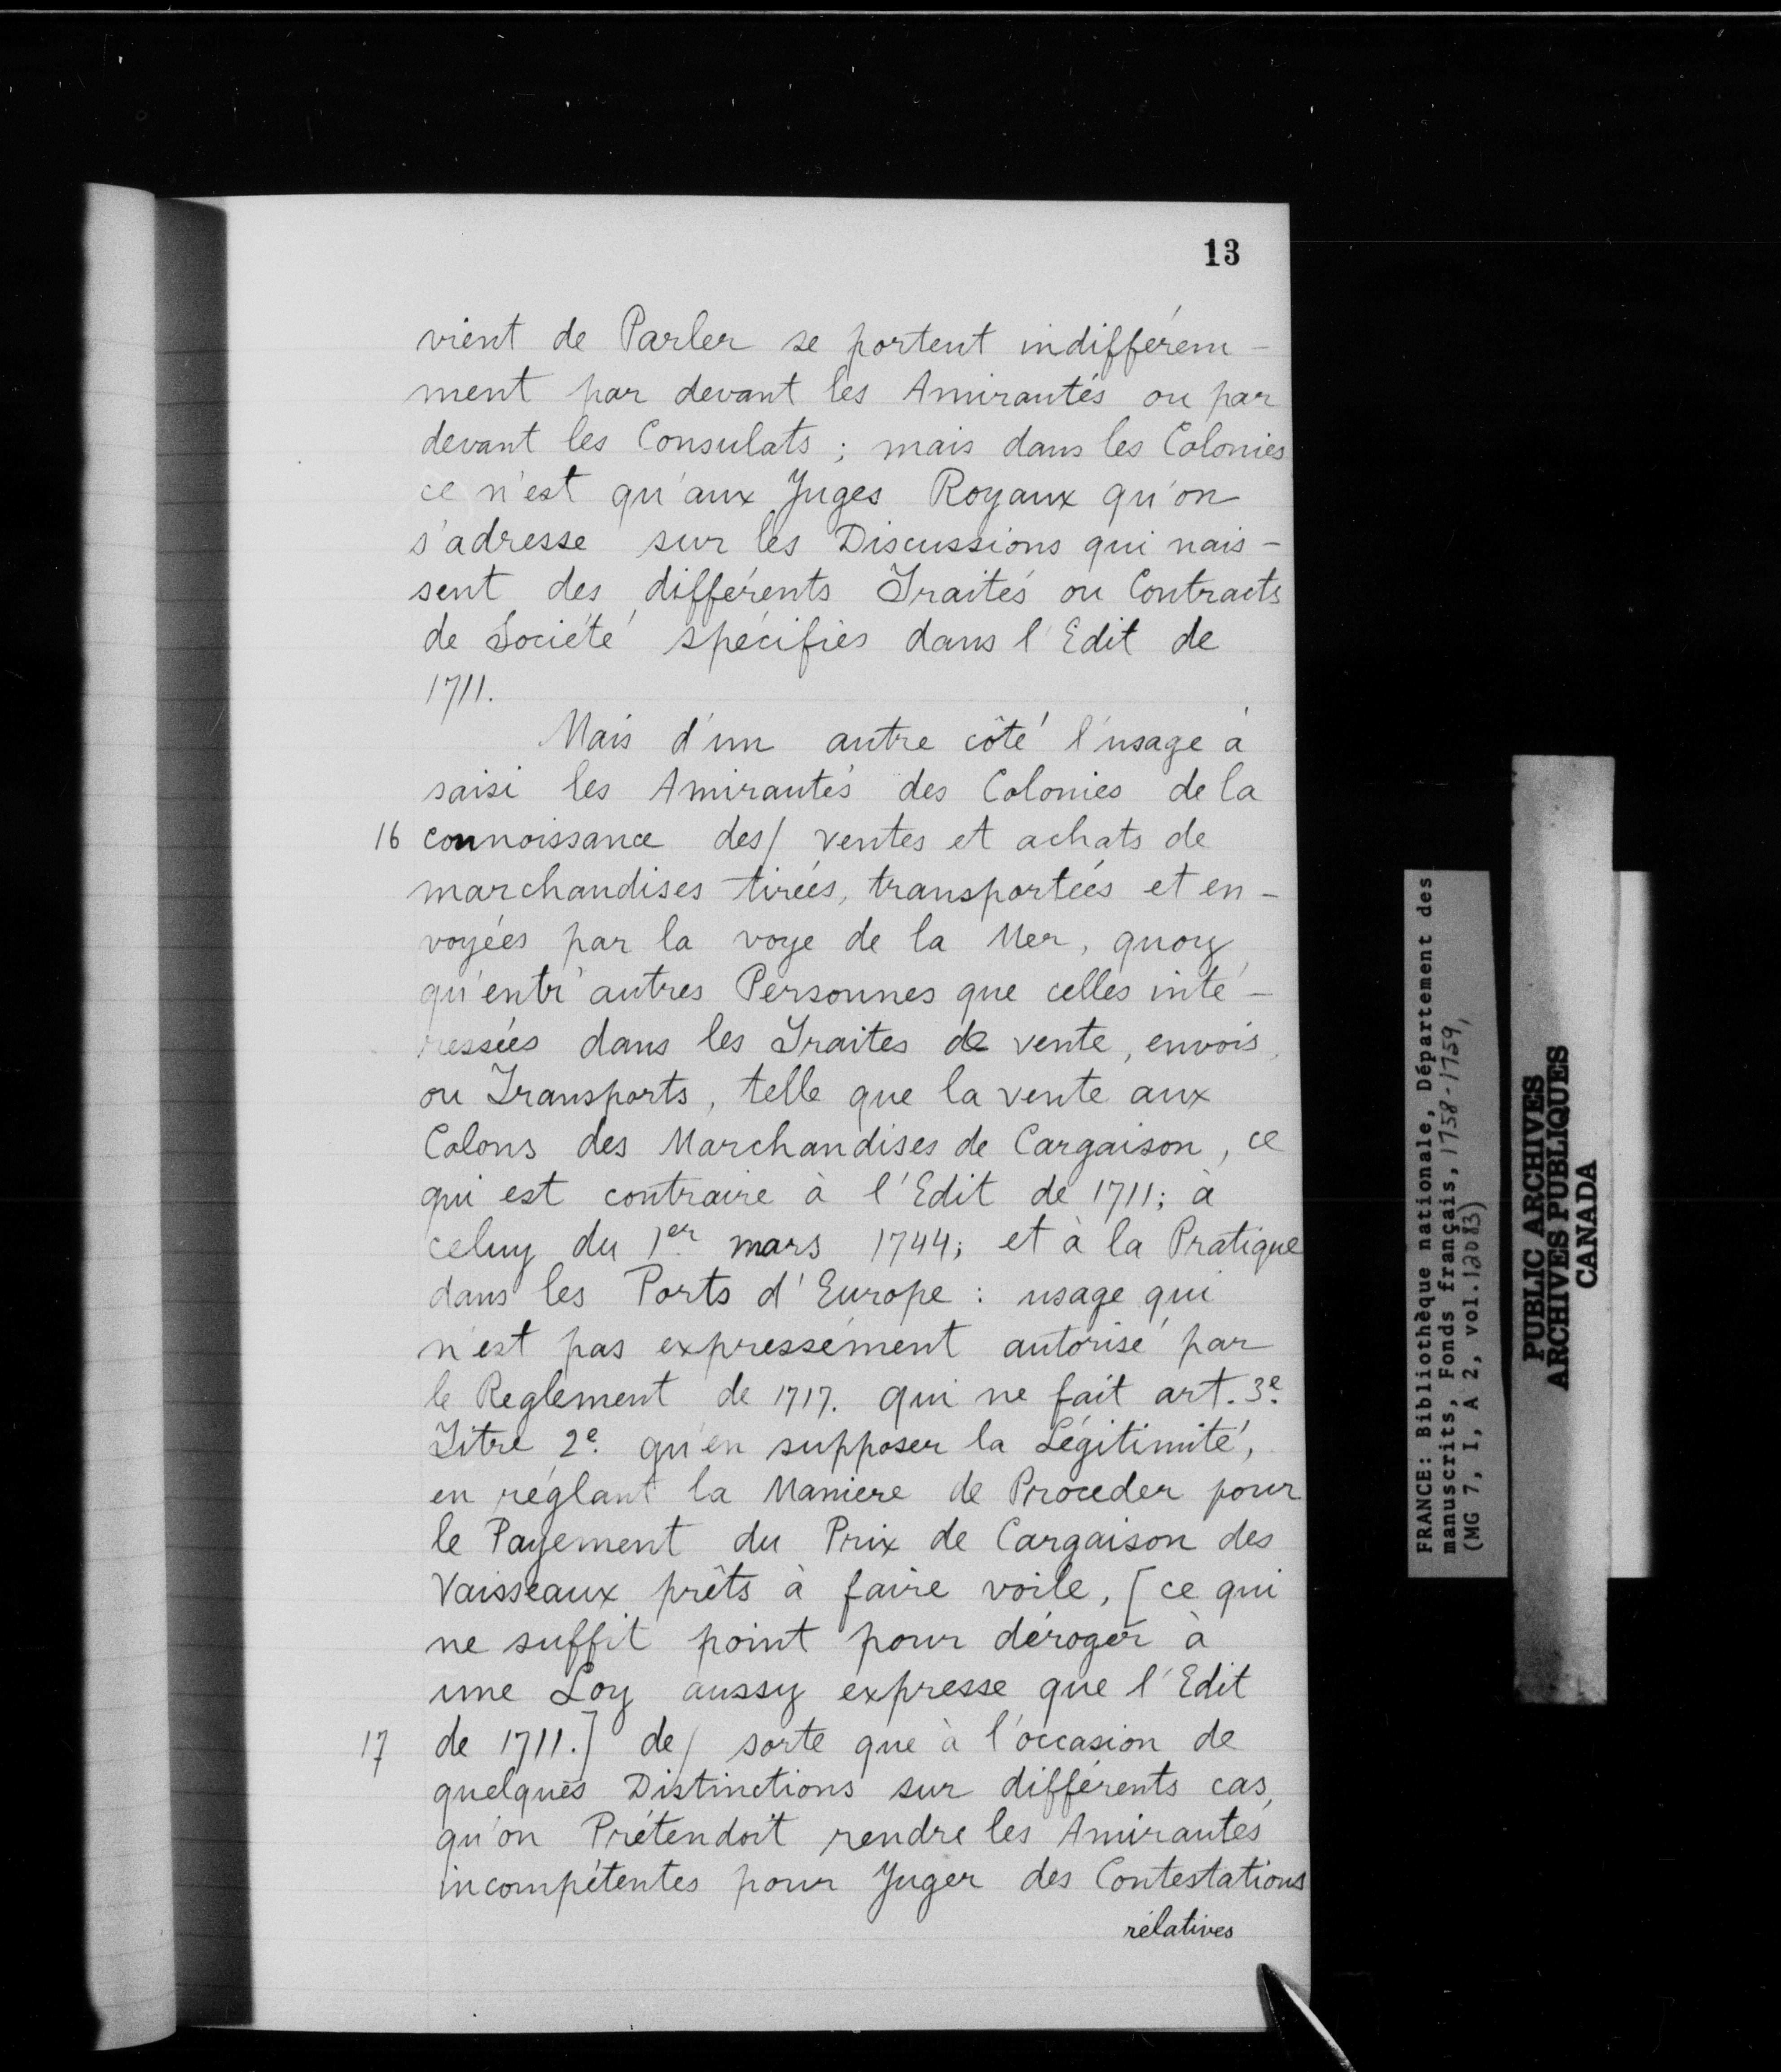 13
vient de Parler se portent indifférem-
ment par devant les Amirautés ou par
devant les Consulats ; mais dans les Colonies
ce n'est qu'aux Juges Royaux qu'on
s'adresse sur les Discussions qui nais-
sent des différents Traités ou Contracts
de Société spécifiés dans l'Edit de
1711.
Mais d'un autre côté l'usage à
saisi les Amirautés des Colonies de la
16 connoissance des/ ventes et achats de
marchandises tirées, transportées et en-
voyées par la voye de la Mer, quoy
qu'entr'autres Personnes que celles inté-
ressées dans les Traites de vente, envois,
ou Transports, telle que la vente aux
Colons des Marchandises de Cargaison, ce
qui est contraire à l'Edit de 1711; à
celuy du 1er mars 1744; et à la Pratique
dans les Ports d'Europe : usage qui
n'est pas expressément autorisé par
le Reglement de 1717. qui ne fait art. 3e.
Titre 2e. qu'en supposer la Légitimité,
en réglant la Maniere de Proceder pour
le Payement du Prix de Cargaison des
Vaisseaux prêts à faire voile, [ce qui
ne suffit point pour déroger à
une Loy aussy expresse que l'Edit
17 de 1711.] de/ sorte que à l'occasion de
quelques Distinctions sur différents cas,
qu'on Prétendoit rendre les Amirautés
incompétentes pour Juger des Contestations
rélatives
FRANCE: Bibliothèque nationale, Département des
manuscrits, Fonds français, 1758-1759,
(MG 7, I, A 2, vol. 12083)
PUBLIC ARCHIVES
ARCHIVES PUBLIQUES
CANADA